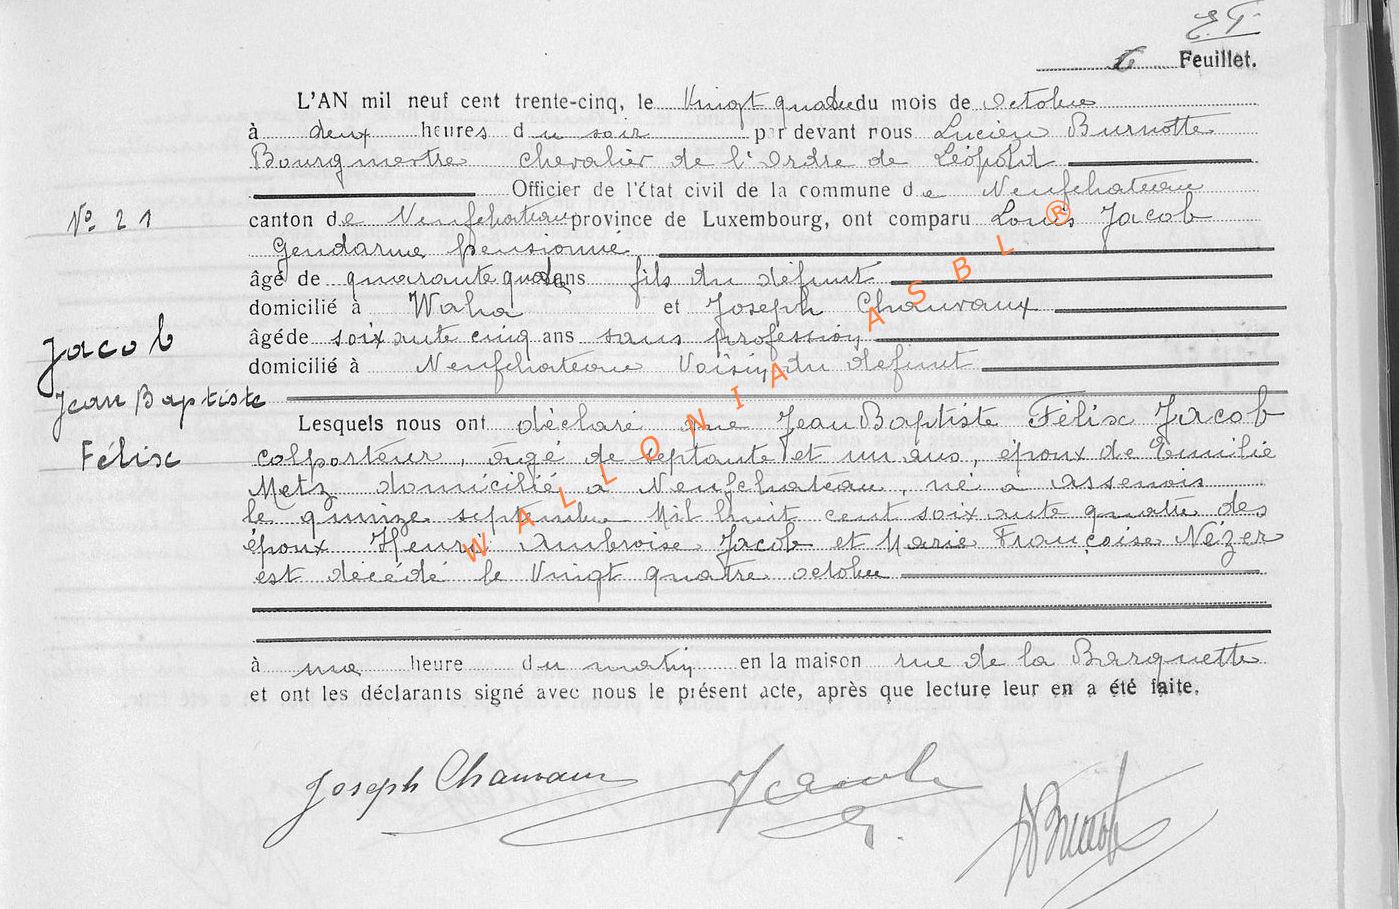 6 Feuillet.
L'AN mil neuf cent trente-cinq, le Vingt quatre du mois de octobre
à deux heures du soir par devant nous Lucien Burnotte
Bourgmestre chevalier de l'ordre de Léopold
Officier de l'État civil de la commune de Neufchateau
N° 21
canton de Neufchateau province de Luxembourg, ont comparu Louis Jacob
Gendarme pensionné
âgé de quarante quatre ans fils du défunt
domicilié à Waha et Joseph Chauvaux
âgé de soixante cinq ans sans profession
domicilié à Neufchateau Voisin du défunt
Jacob
Jean Baptiste
Félix
Lesquels nous ont déclaré que Jean Baptiste Félix Jacob
colporteur, âgé de septante et un ans, époux de Emilie
Metz domicilié à Neufchateau, né à Assenois
le quinze septembre Mil huit cent soixante quatre des
époux Henri Ambroise Jacob et Marie Françoise Nézer
est décédé le Vingt quatre octobre
à une heure du matin en la maison rue de la Barquette
et ont les déclarants signé avec nous le présent acte, après que lecture leur en a été faite.
Joseph Chauvaux Jacob L. Burnotte
WALLONIA ASBL ®